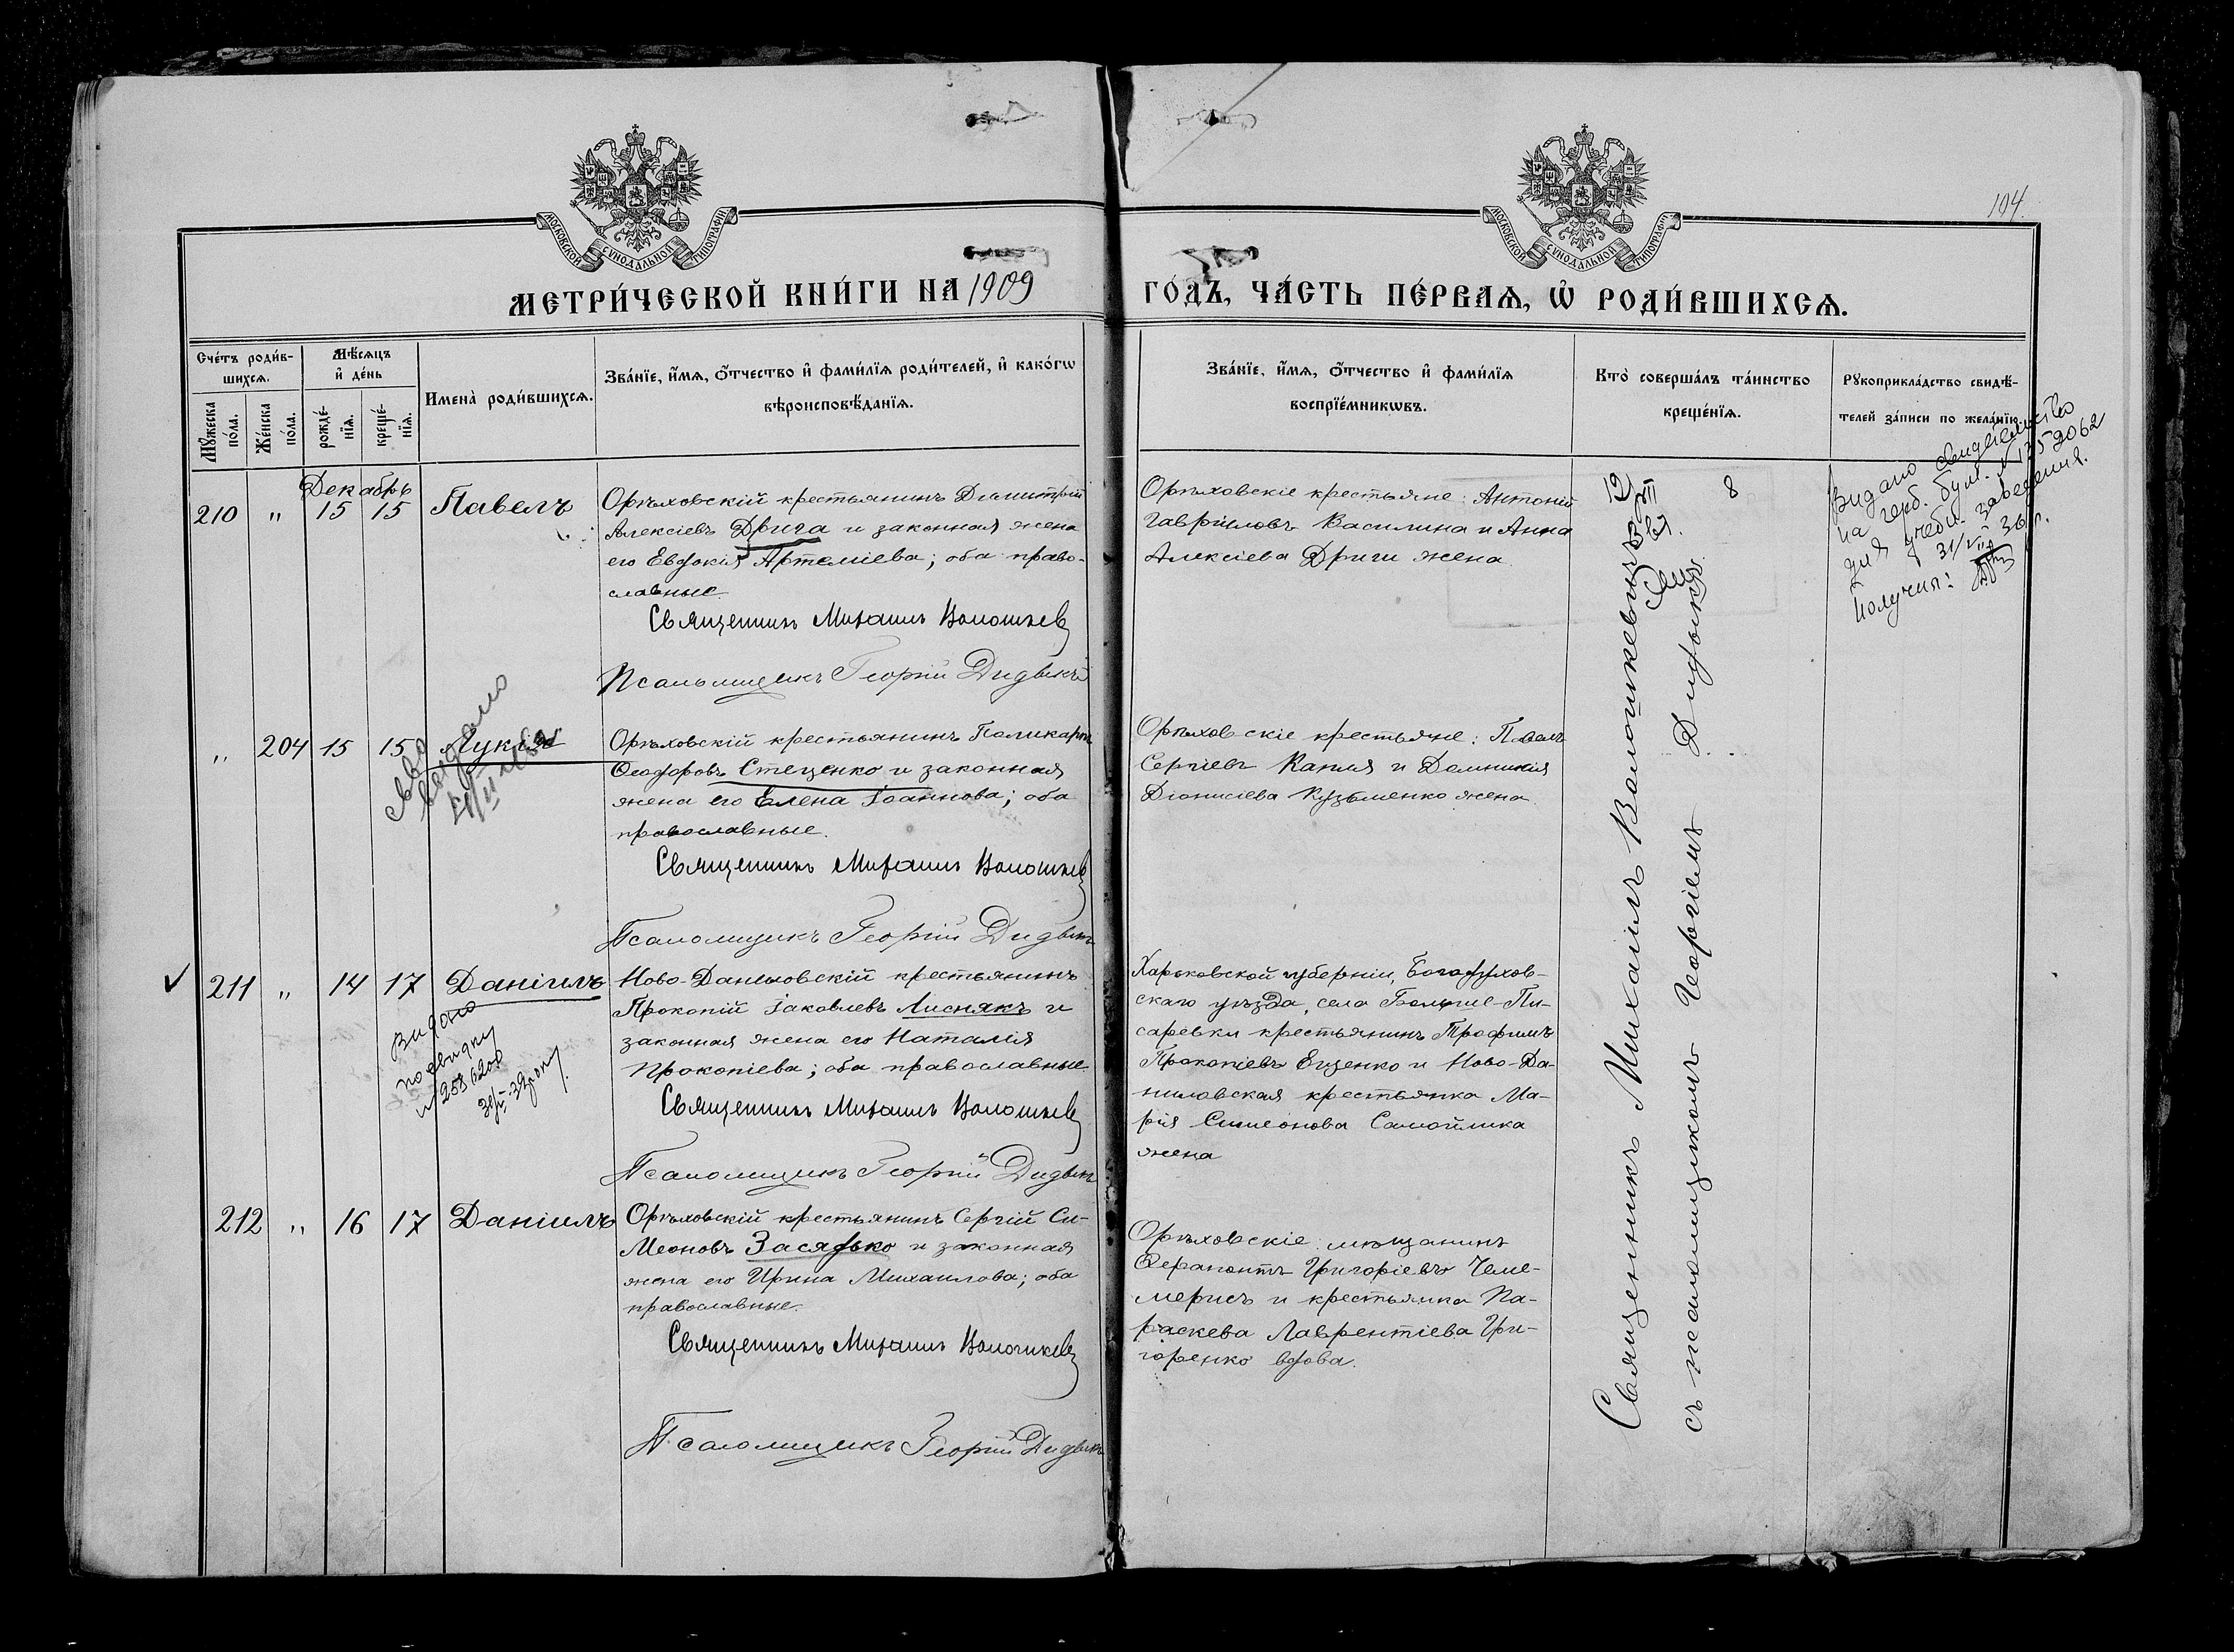 104.
МОСКОВСКОЙ СѴНОДАЛЬНОЙ ТИПОГРАФІИ
МОСКОВСКОЙ СѴНОДАЛЬНОЙ ТИПОГРАФІИ
МЕТРИ́ЧЕСКОЙ КНИ́ГИ НА 1909
ГО́ДЪ, ЧА́СТЬ ПЕ́РВАѦ, Ѡ҆ РОДИ́ВШИХСѦ.
Сче́тъ роди́в-
шихсѧ.
Мѣ́сѧцъ
и҆ де́нь
Мꙋ́жеска
по́ла.
Же́нска
по́ла.
рожде́-
нїѧ.
креще́-
нїѧ.
Имена̀ роди́вшихсѧ.
Зва́нїе, и҆́мѧ, ѻ҆́тчество и҆ фами́лїѧ роди́телей, и҆ како́гѡ
вѣроисповѣ́данїѧ.
Зва́нїе, и҆́мѧ, ѻ҆́тчество и҆ фами́лїѧ
воспрїе́мникѡвъ.
Кто̀ соверша́лъ та́инство
креще́нїѧ.
Рꙋкоприкла́дство свидѣ́-
телей за́писи по жела́нїю.
Декабрь
210 " 15 15 Павелъ
Орѣховскій крестьянинъ Димитрій
Алексіевъ Дрига и законная жена
его Евдокія Артеміева; оба право-
славные.
Священникъ Михаилъ Волошкев
Псаломщикъ Георгій Дидык
Орѣховскіе крестьяне: Антоній
Гавріиловъ Василина и Анна
Алексіева Дриги жена.
8
Видано свидетельство
на герб. бум. N 1352062
для учебн. заведения.
31/VII 36 р.
Получил:
" 204 15 15 Лукія
выдано
Орѣховскій крестьянинъ Поликарпъ
Ѳеодоровъ Стеценко и законная
жена его Елена Іоаннова; оба
православные.
Священникъ Михаилъ Волошкев
Псаломщикъ Георгій Дидык
Орѣховскіе крестьяне: Павелъ
Сергіевъ Капля и Домникія
Діонисіева Кузьменко жена.
211 " 14 17 Даніилъ
Видано
посвидку
Ново-Даниловскій крестьянинъ
Прокопій Іаковлевъ Лиснякъ и
законная жена его Наталія
Прокопіева; оба православные
Священникъ Михаилъ Волошкев
Псаломщикъ Георгій Дидык
Харьковской губерніи, Богодухов-
скаго уѣзда, села Больше-Пи-
саревки крестьянинъ Трофимъ
Прокопіевъ Ещенко и Ново-Да-
ниловская крестьянка Ма-
рія Симеонова Самойлика
жена
212 " 16 17 Даніилъ
Орѣховскій крестьянинъ Сергій Си-
меоновъ Засядько и законная
жена его Ирина Михаилова; оба
православные.
Священникъ Михаилъ Волошкев
Псаломщикъ Георгій Дидык
Орѣховскіе: мѣщанинъ
Ѳерапонтъ Григоріевъ Чеме-
мерисъ и крестьянка Па-
раскева Лаврентіева Гри-
горенко вдова.
Священникъ Михаилъ Волошкевичъ
съ псаломщикомъ Георгіемъ Дидыкъ